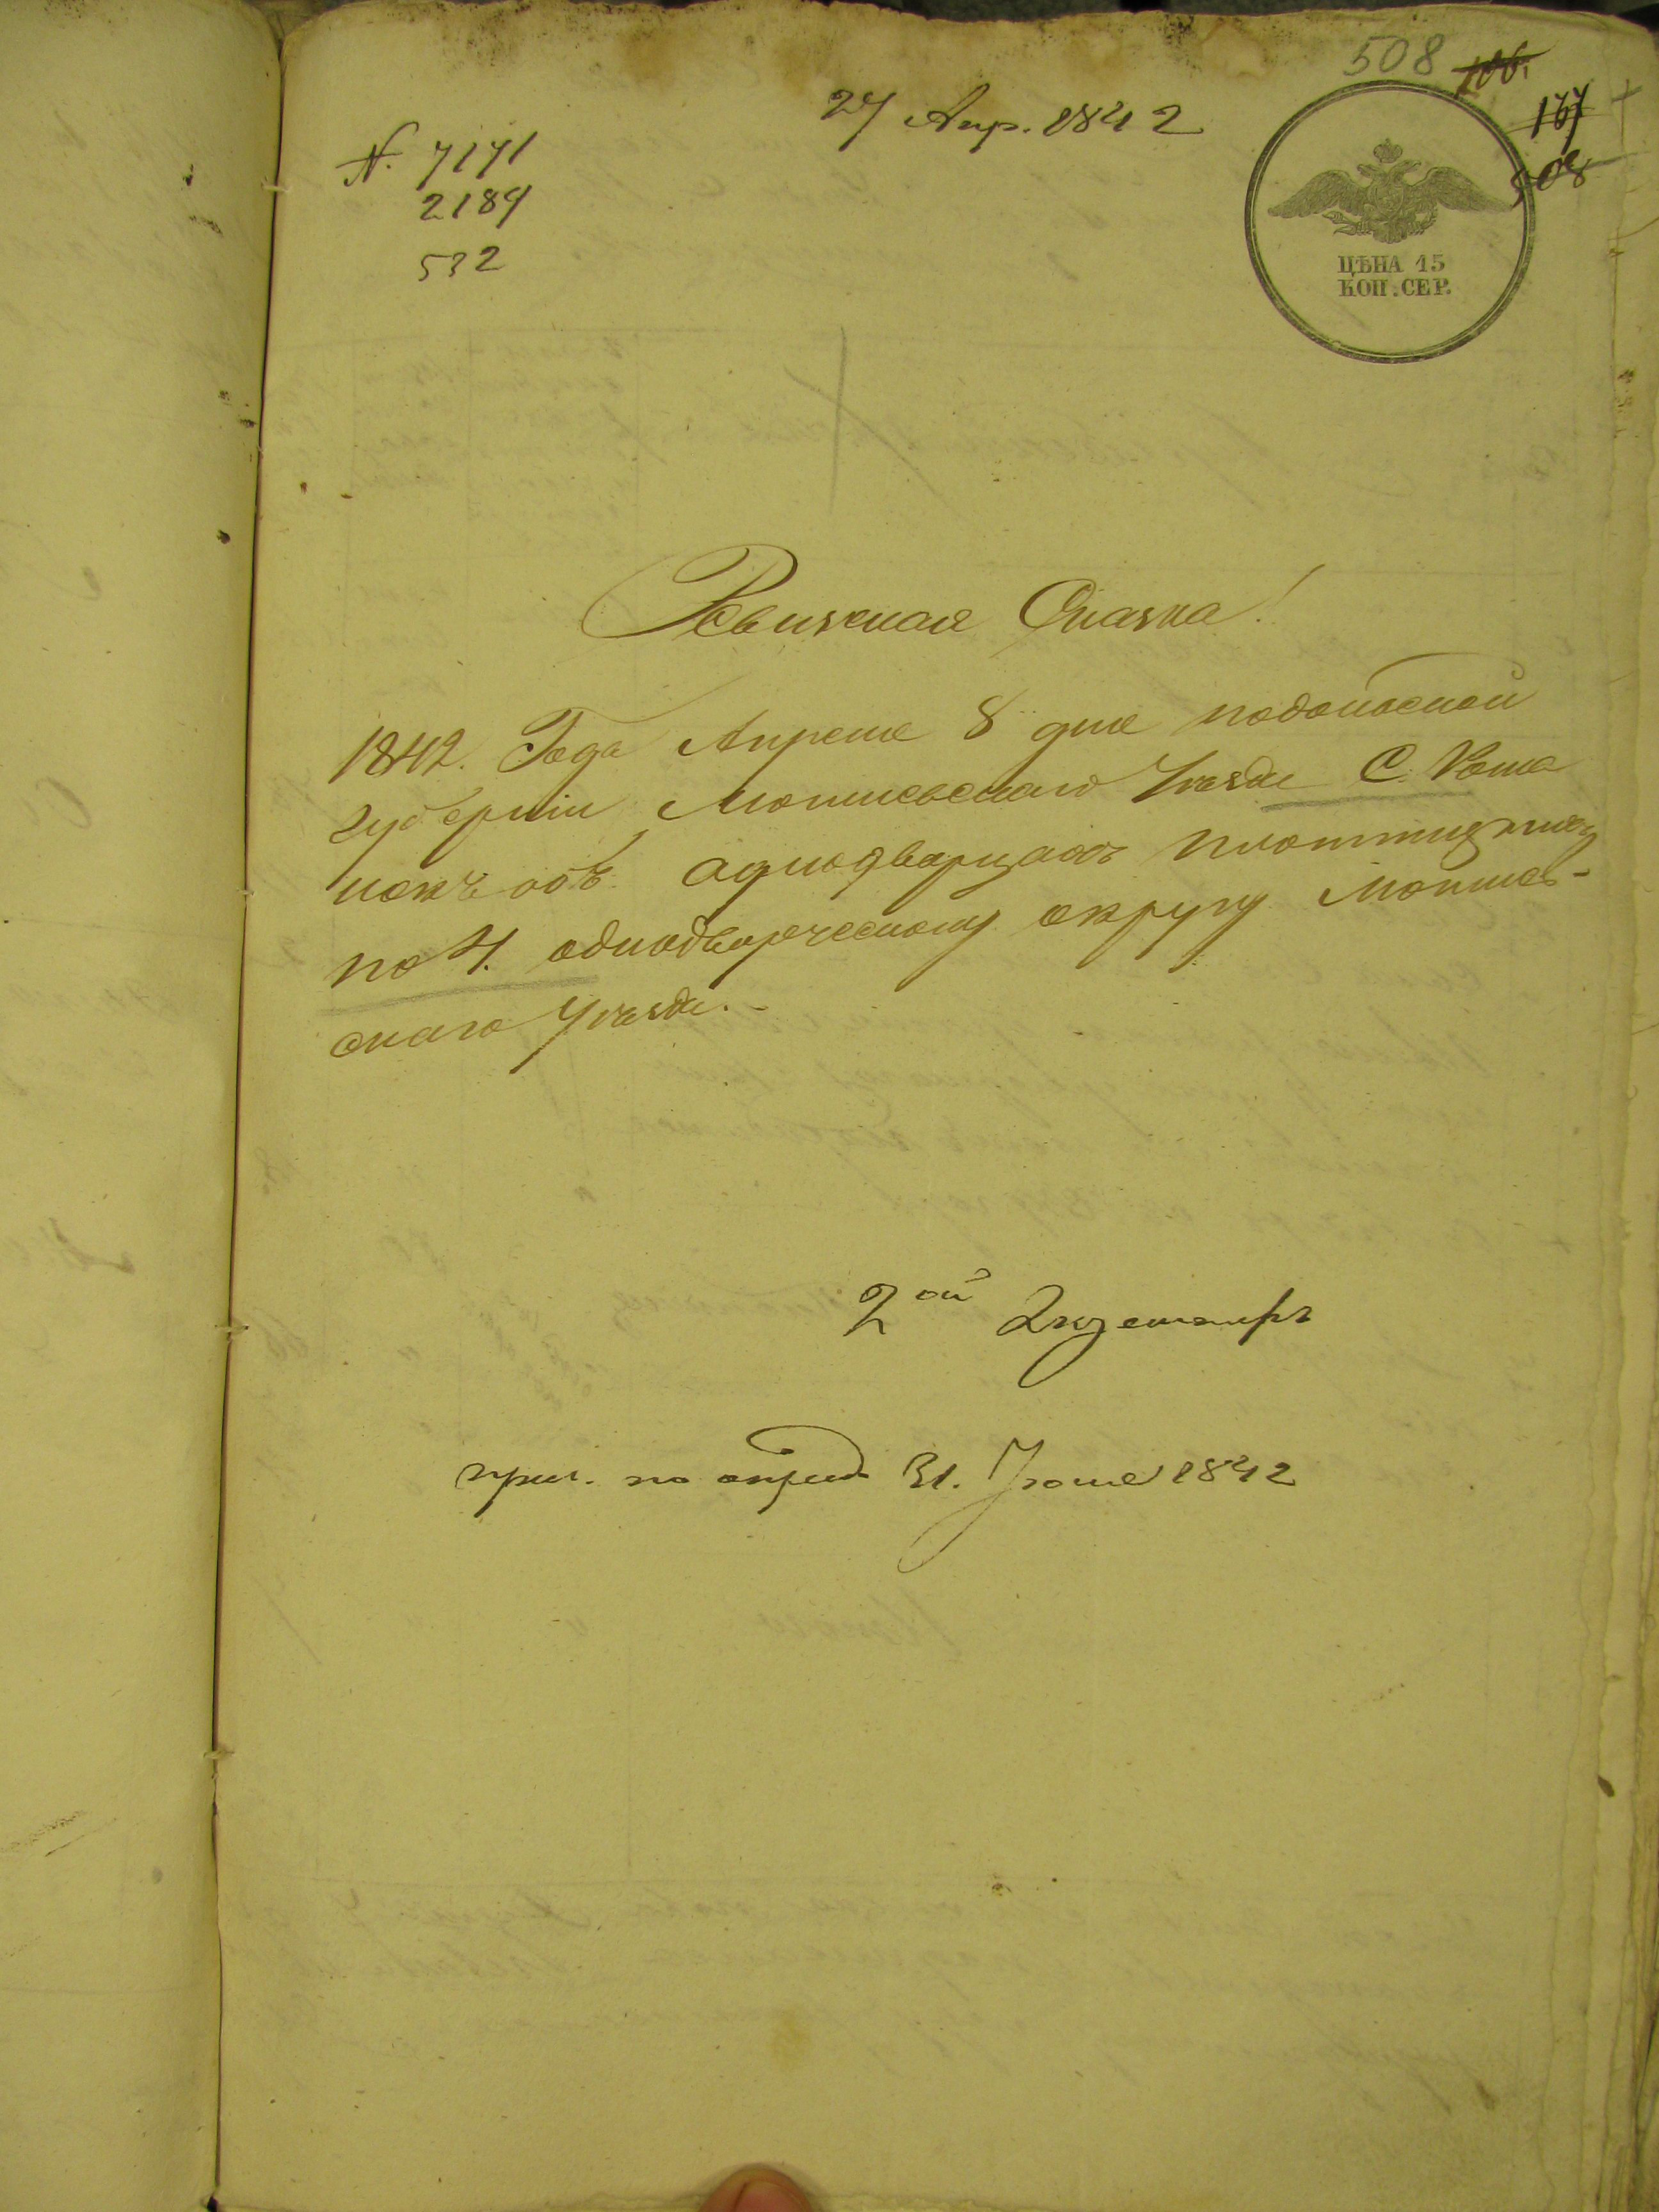 508
106.
167
508
27 Апр. 1842
N. 7171
2189
532
ЦѢНА 15
КОП. СЕР.
Ревизская Сказка!
1842. Года Апреля 8 дня подольской
губерніи Могилевскаго Уезда С.
объ однодворцахъ
по 4. однодворческому округу Могилев-
скаго Уезда.
2ой Экземпляръ
прил. по опред 31. Іюля 1842